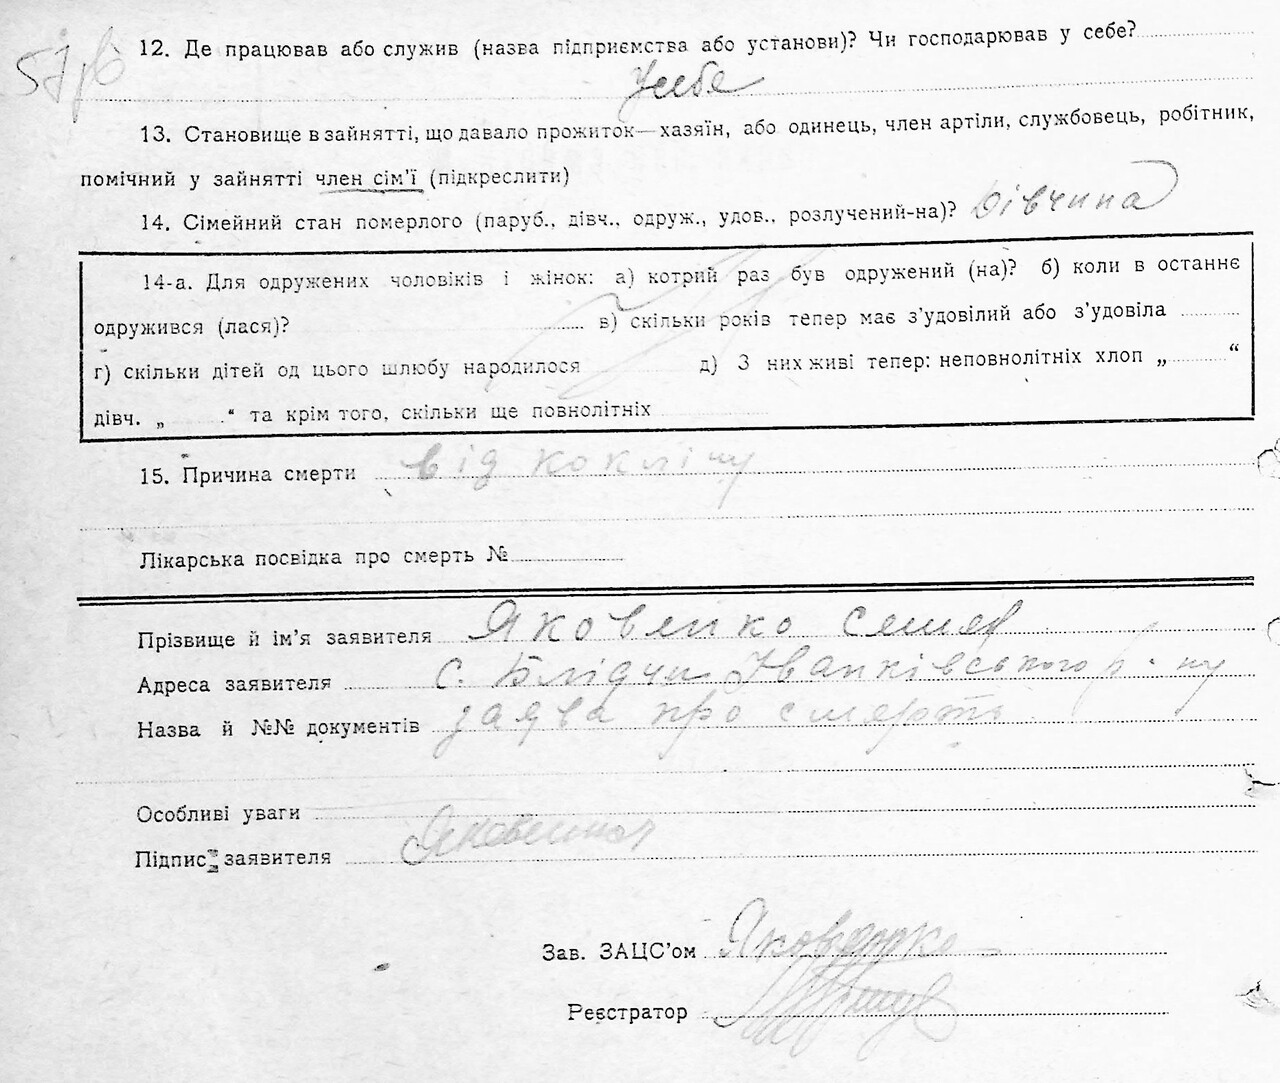 12. Де працював або служив (назва підприємства або установи)? Чи господарював у себе?
У себе
13. Становище в зайнятті, що давало прожиток—хазяїн, або одинець, член артіли, службовець, робітник,
помічний у зайнятті член сім'ї (підкреслити)
14. Сімейний стан померлого (паруб., дівч., одруж., удов., розлучений-на)? Дівчина
14-а. Для одружених чоловіків і жінок: а) котрий раз був одружений (на)? б) коли в останнє
одружився (лася)? в) скільки років тепер має з'удовілий або з'удовіла
г) скільки дітей од цього шлюбу народилося д) З них живі тепер: неповнолітніх хлоп „ “
дівч. „ “ та крім того, скільки ще повнолітніх
15. Причина смерти від коклюшу
Лікарська посвідка про смерть №
Прізвище й ім'я заявителя Яковенко Семен
Адреса заявителя с. Блідча Іванківського р-ну
Назва й №№ документів заява про смерть
Особливі уваги
Підпис заявителя Яковенко
Зав. ЗАЦС'ом Яковенко
Реєстратор